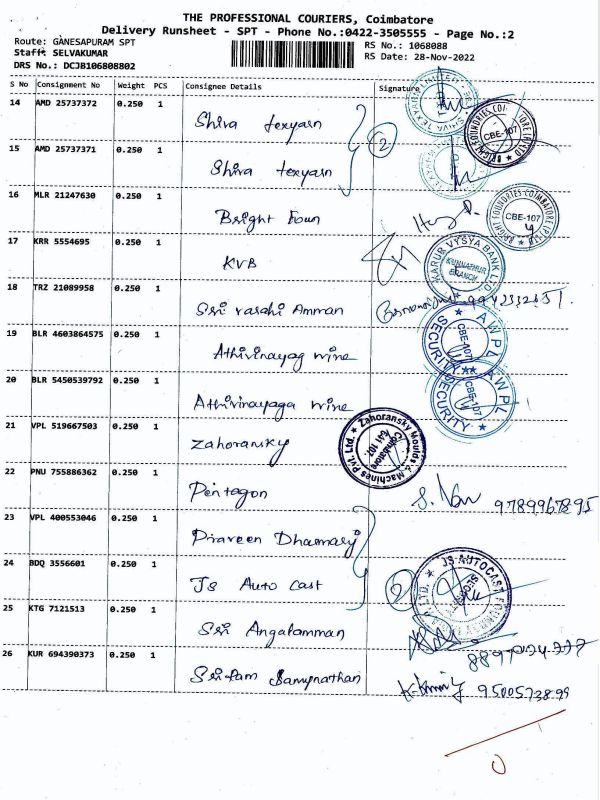 THE PROFESSIONAL COURIERS, Coimbatore
Delivery Runsheet - SPT - Phone No.:0422-3505555 - Page No.:2
Route: GANESAPURAM SPT
Staff: SELVAKUMAR
DRS No.: DCJB106808802
RS No.: 1068088
RS Date: 28-Nov-2022
S No Consignment No Weight PCS Consignee Details Signature
14 AMD 25737372 0.250 1
Shiva texyarn
2
15 AMD 25737371 0.250 1
Shiva texyarn
BRIGHT FOUNDRIES COIMBATORE (P) LTD
CBE-107
16 MLR 21247630 0.250 1
Bright Foun
BRIGHT FOUNDRIES COIMBATORE (P) LTD
CBE-107
17 KRR 5554695 0.250 1
KVB
KARUR VYSYA BANK LTD
KUNNATHUR BRANCH
18 TRZ 21089958 0.250 1
Sri vasahi Amman
19 BLR 4603864575 0.250 1
Athivinayag wine
AWPL SECURITY
CBE-107
20 BLR 5450539792 0.250 1
Athivinayaga wine
AWPL SECURITY
CBE-107
21 VPL 519667503 0.250 1
Zahoransky
Zahoransky Moulds & Machines Pvt. Ltd.
Coimbatore
641 107.
22 PNU 755886362 0.250 1
Pentagon
9789967895
23 VPL 400553046 0.250 1
Praveen
24 BDQ 3556601 0.250 1
Js Auto Cast
2
JS AUTOCAST
25 KTG 7121513 0.250 1
Sri Angalamman
26 KUR 694390373 0.250 1
9500573899